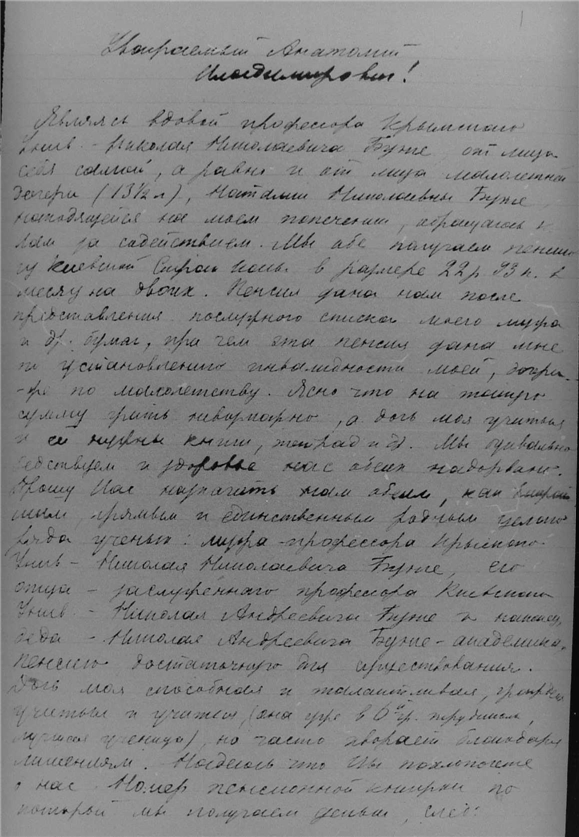 Уважаемый Анатолий
Владимирович!
Являясь вдовой профессора Крымского
Унив. - Николая Николаевича Бунге, от лица
себя самой, а равно и от лица малолетней
дочери (13½ л), Наталии Николаевны Бунге,
находящейся на моем попечении, обращаюсь к
Вам за содействием. Мы обе получаем пенсию
Киевской Страх. в размере 22 р 93 к. в
месяц на двоих. Пенсия дана нам после
представления послужного списка моего мужа
и др. бумаг, при чем эта пенсия дана мне
по установлению инвалидности моей, дочери
же по малолетству. Ясно что на такую
сумму жить невозможно, а дочь моя учиться
и ей нужны книги, тетрад и др. Мы буквально
бедствуем и здоровье нас обеих надорвано.
Прошу Вас назначить нам обеим, как
прямым и единственным родным целого
ряда ученых: мужа - профессора Крымского
Унив - Николая Николаевича Бунге, его
отца - заслуженного профессора Киевского
Унив. - Николая Андреевича Бунге и наконец
деда - Николая Андреевича Бунге - академика,
пенсию достаточную для существования.
Дочь моя способная и талантливая,
учиться и учиться (она уже в 6ой гр. трудшк.,
лучшая ученица), но часто хворает благодаря
лишениям. Надеюсь что Вы похлопочете
о нас. Номер пенсионной книжки по
которой мы получаем деньги, след: